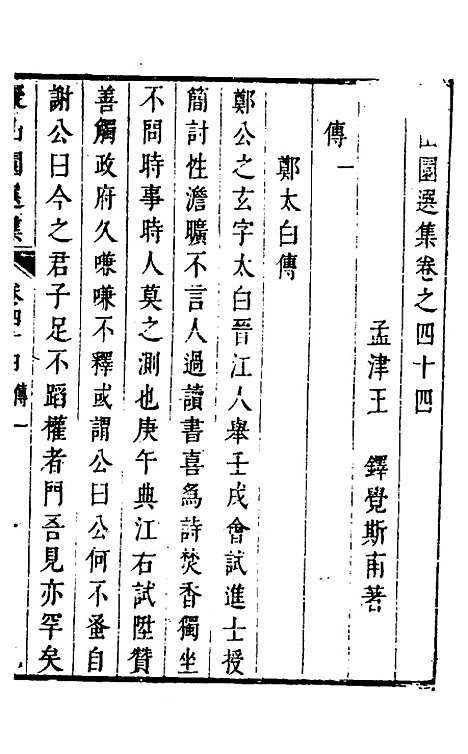 山園選集卷之四十四
孟津王 鐸覺斯甫著
傳一
鄭太白傳
鄭公之玄字太白晉江人舉壬戌會試進士授
簡討性澹曠不言人過讀書喜爲詩焚香獨坐
不問時事時人莫之測也庚午典江右試陞贊
善觸政府久嗛嗛不釋或謂公曰公何不蚤自
謝公曰今之君子足不蹈權者門吾見亦罕矣
擬山園選集 卷四十四傳一